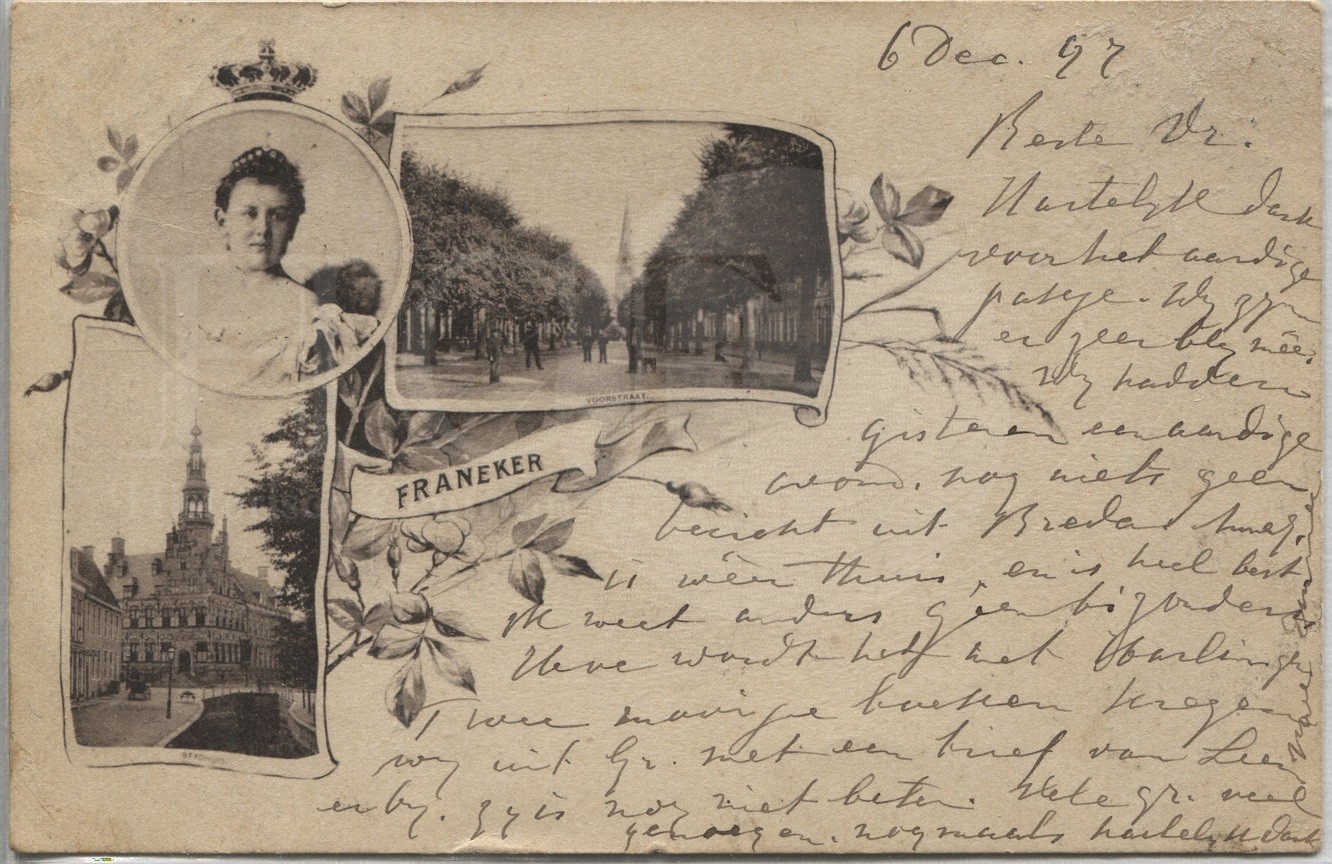 6 Dec. 97
Beste Vr.
Hartelyk dank
voor het aardige
pakje. Wy zyn
er zeer bly mêe.
Wy hadden
gisteren een aardige
avond. nog niets geen
bericht uit Breda
is wêer thuis, en is heel best
Ik weet anders geen byzonders
Hoe wordt het met
Twee mooije boeken kregen
wy uit Gr. met een brief van
er by. zy is nog niet beter. Vele gr. veel
genoegen. nogmaals hartelyk dank
VOORSTRAAT.
FRANEKER
STADHUIS.